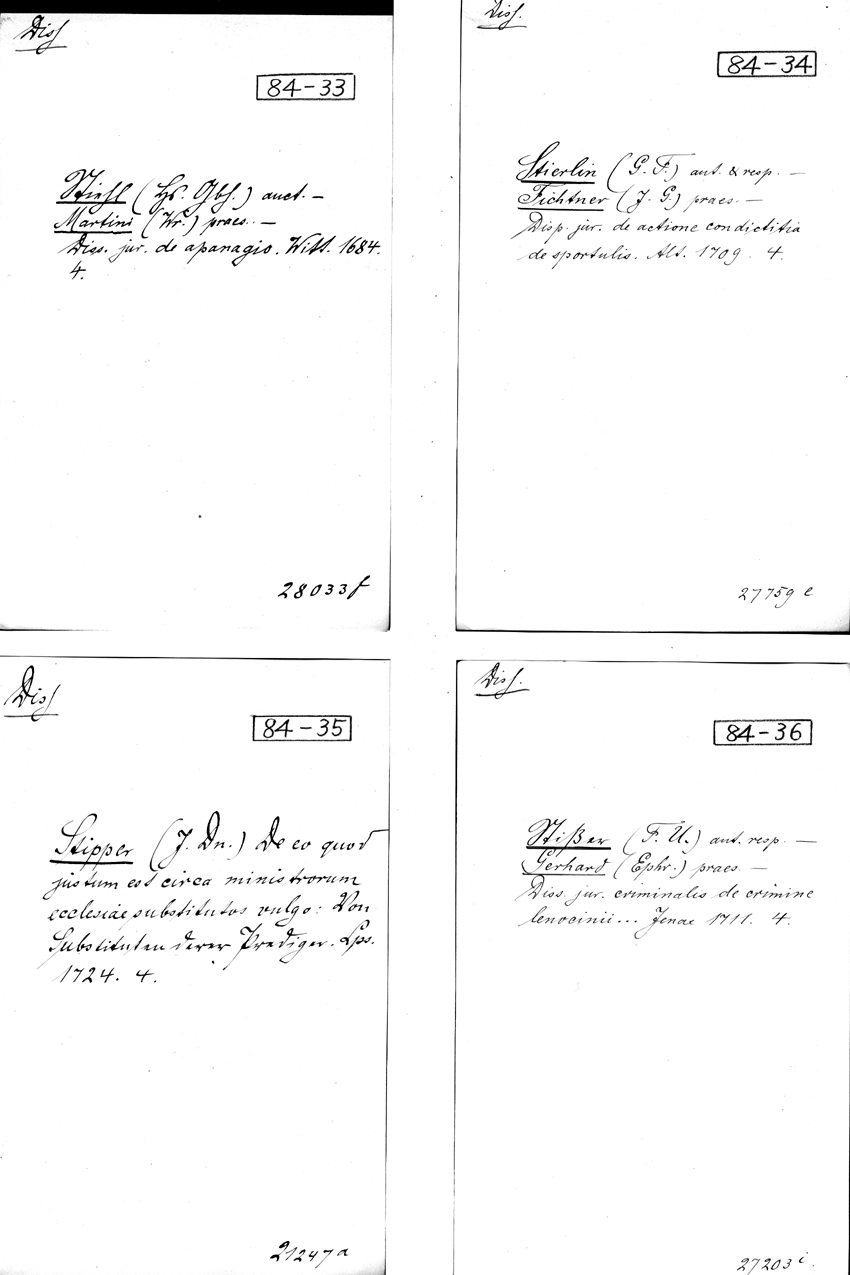 Diss
84-33
Stiehl (Hs. Gbh.) auct. —
Martini (Wr.) praes. —
Diss. jur. de apanagio. Witt. 1684.
4.
28033f
Diss.
84-34
Stierlin (G. F.) aut. & resp. —
Fichtner (J. G.) praes. —
Disp. jur. de actione condictitia
de sportulis. Alt. 1709. 4.
27759 e
Diss
84-35
Stipper (J. Dn.) De eo quod
justum est circa ministrorum
ecclesiae substitutos vulgo: Von
Substituten derer Prediger. Lps.
1724. 4.
21247a
Diss.
84-36
Stißer (F. U.) aut. resp. —
Gerhard (Ephr.) praes. —
Diss. jur. criminalis de crimine
lenocinii... Jenae 1711. 4.
27203 i.